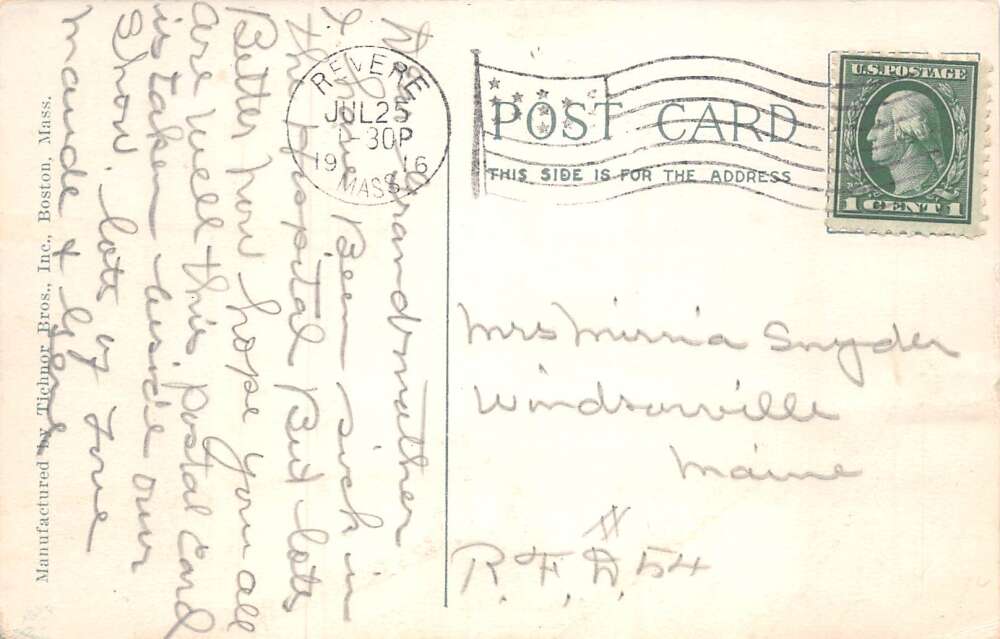 Dear Grandmother
I have Been sick in
the hospital But lots
Better now hope you all
are well this postal card
is taken beside our
Show. lots of love
Maude &
Manufactured by Tichnor Bros., Inc., Boston, Mass.
REVERE
JUL 25
-30P
1916
MASS.
POST CARD
THIS SIDE IS FOR THE ADDRESS
U.S. POSTAGE
1 CENT 1
Mrs Mirria Snyder
Windsorville
Maine
R. F. D. # 54